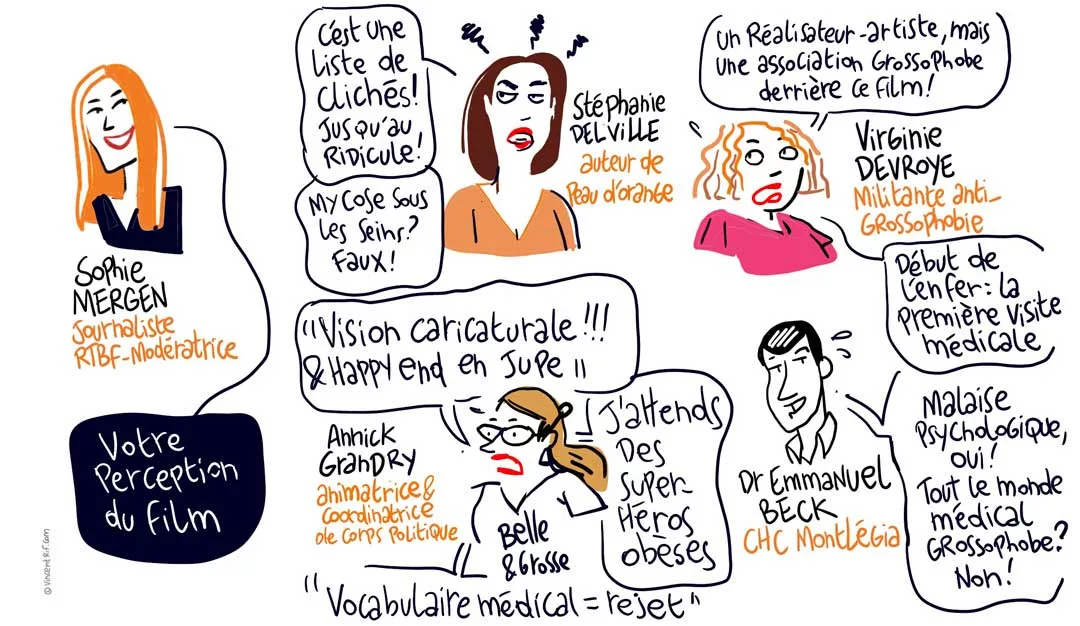 Sophie
MERGEN
Journaliste
RTBF-Modératrice
Votre
Perception
du Film
C'est une
liste de
clichés!
Jusqu'au
Ridicule!
Mycose sous
les seins?
Faux!
Stéphanie
DELVILLE
auteur de
Peau d'orange
un Réalisateur-artiste, mais
une association Grossophobe
derrière ce film!
Virginie
DEVROYE
Militante anti-
Grossophobie
Début de
l'enfer: la
première visite
médicale
"Vision caricaturale!!!
& Happy end en Jupe"
Annick
GranDRy
animatrice &
coordinatrice
de Corps Politique
Belle
& Grosse
J'attends
Des
Super-
Héros
obèses
"Vocabulaire médical = rejet"
Dr Emmanuel
BECK
CHC Montlégia
Malaise
Psychologique,
oui!
Tout le monde
médical
Grossophobe?
Non!
© vincentrif.com